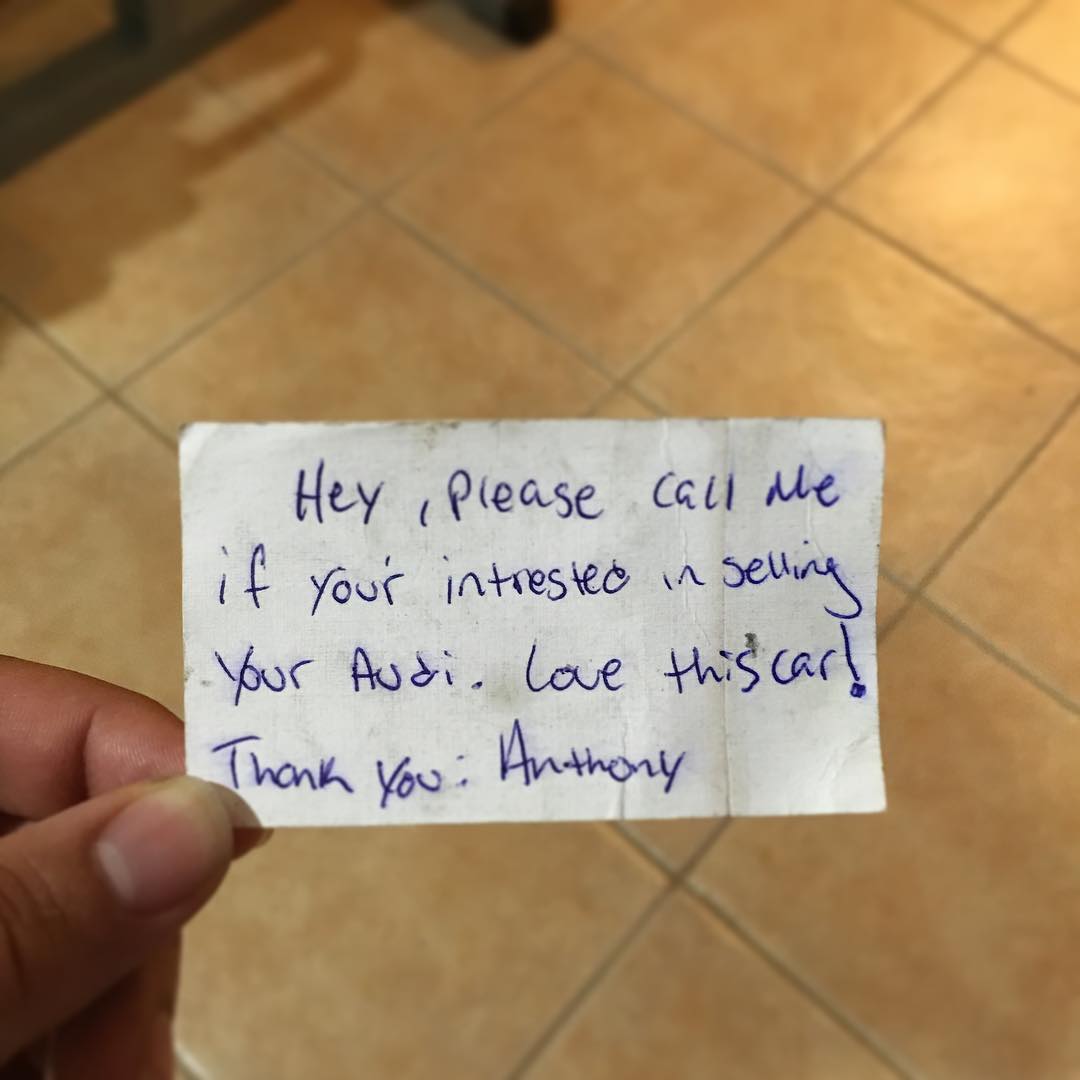 Hey, Please Call Me
if your intrested in selling
Your Audi. Love this car!
Thank You: Anthony